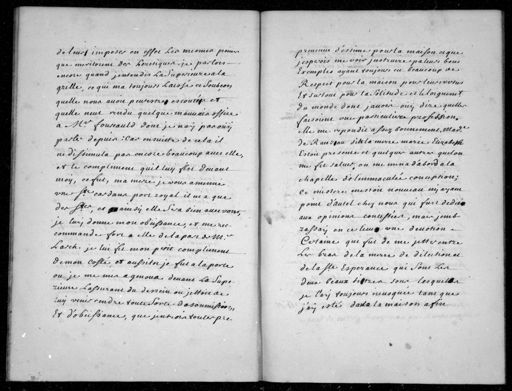 de luy imposer en effet les mesmes peines
que meritoient des heretiques, je parlois
encore quand j'entendis la Superieure a la
grille, ce qui m'a toujours laissé en soubçon
quelle nous avoit peutestre escouté et
quelle eut rendu quelque mauvais office
a Mr foucauld dont je n'ay pas ouy
parlé depuis. Car ensuite de cela il
ne dissimula pas encore beaucoup avec elle,
et le compliment qu'il luy fit devant
moy, ce fut, ma mere je vous ameine
une Sr cardans port royal il n'y a que
des Strs, et ainsi elle sera bien avec vous,
je luy donne mon obeissance, et me re-
commande fort a elle de la part de Mr
Larch. je luy fis mon petit compliment
de mon costé, et aussitost je fus a la porte
ou je me mis a genoux devant la Supe-
rieure l'assurant du dessein ou j'estois de
luy venir rendre toute sorte de soumission,
Et d'obeissance, que j'avois toute pre-
prevenue d'estime pour la maison, et que
j'esperois me voir instruire par leurs bons
Exemples ayant toujours eu beaucoup de
Respect pour la maison pour leur vertus
Et surtout pour la solitude et l'eloignement
du monde dont j'avois ouy dire quelles
faisoient une particuliere profession,
Elle me repondit assez bonnement, Made
de Rantzau dite la mere marie Elizabeth
Estoit presente et quelque autre quelon
me fit saluer, on me mena dabord a la
chapelle de l'immaculée conception;
Ce mistere m'estoit nouveau n'y ayant
point d'autel chez nous qui fust dedié
aux opinions contestées, mais j'emb-
rassay en ce lieu une devotion
Certaine qui fut de me jetter entre
les bras de la mere de dilection et
de la Ste Esperance qui sont les
deux beaux titres sous lesquels
je l'ay toujours invoquée tant que
j'ay esté dans la maison affin